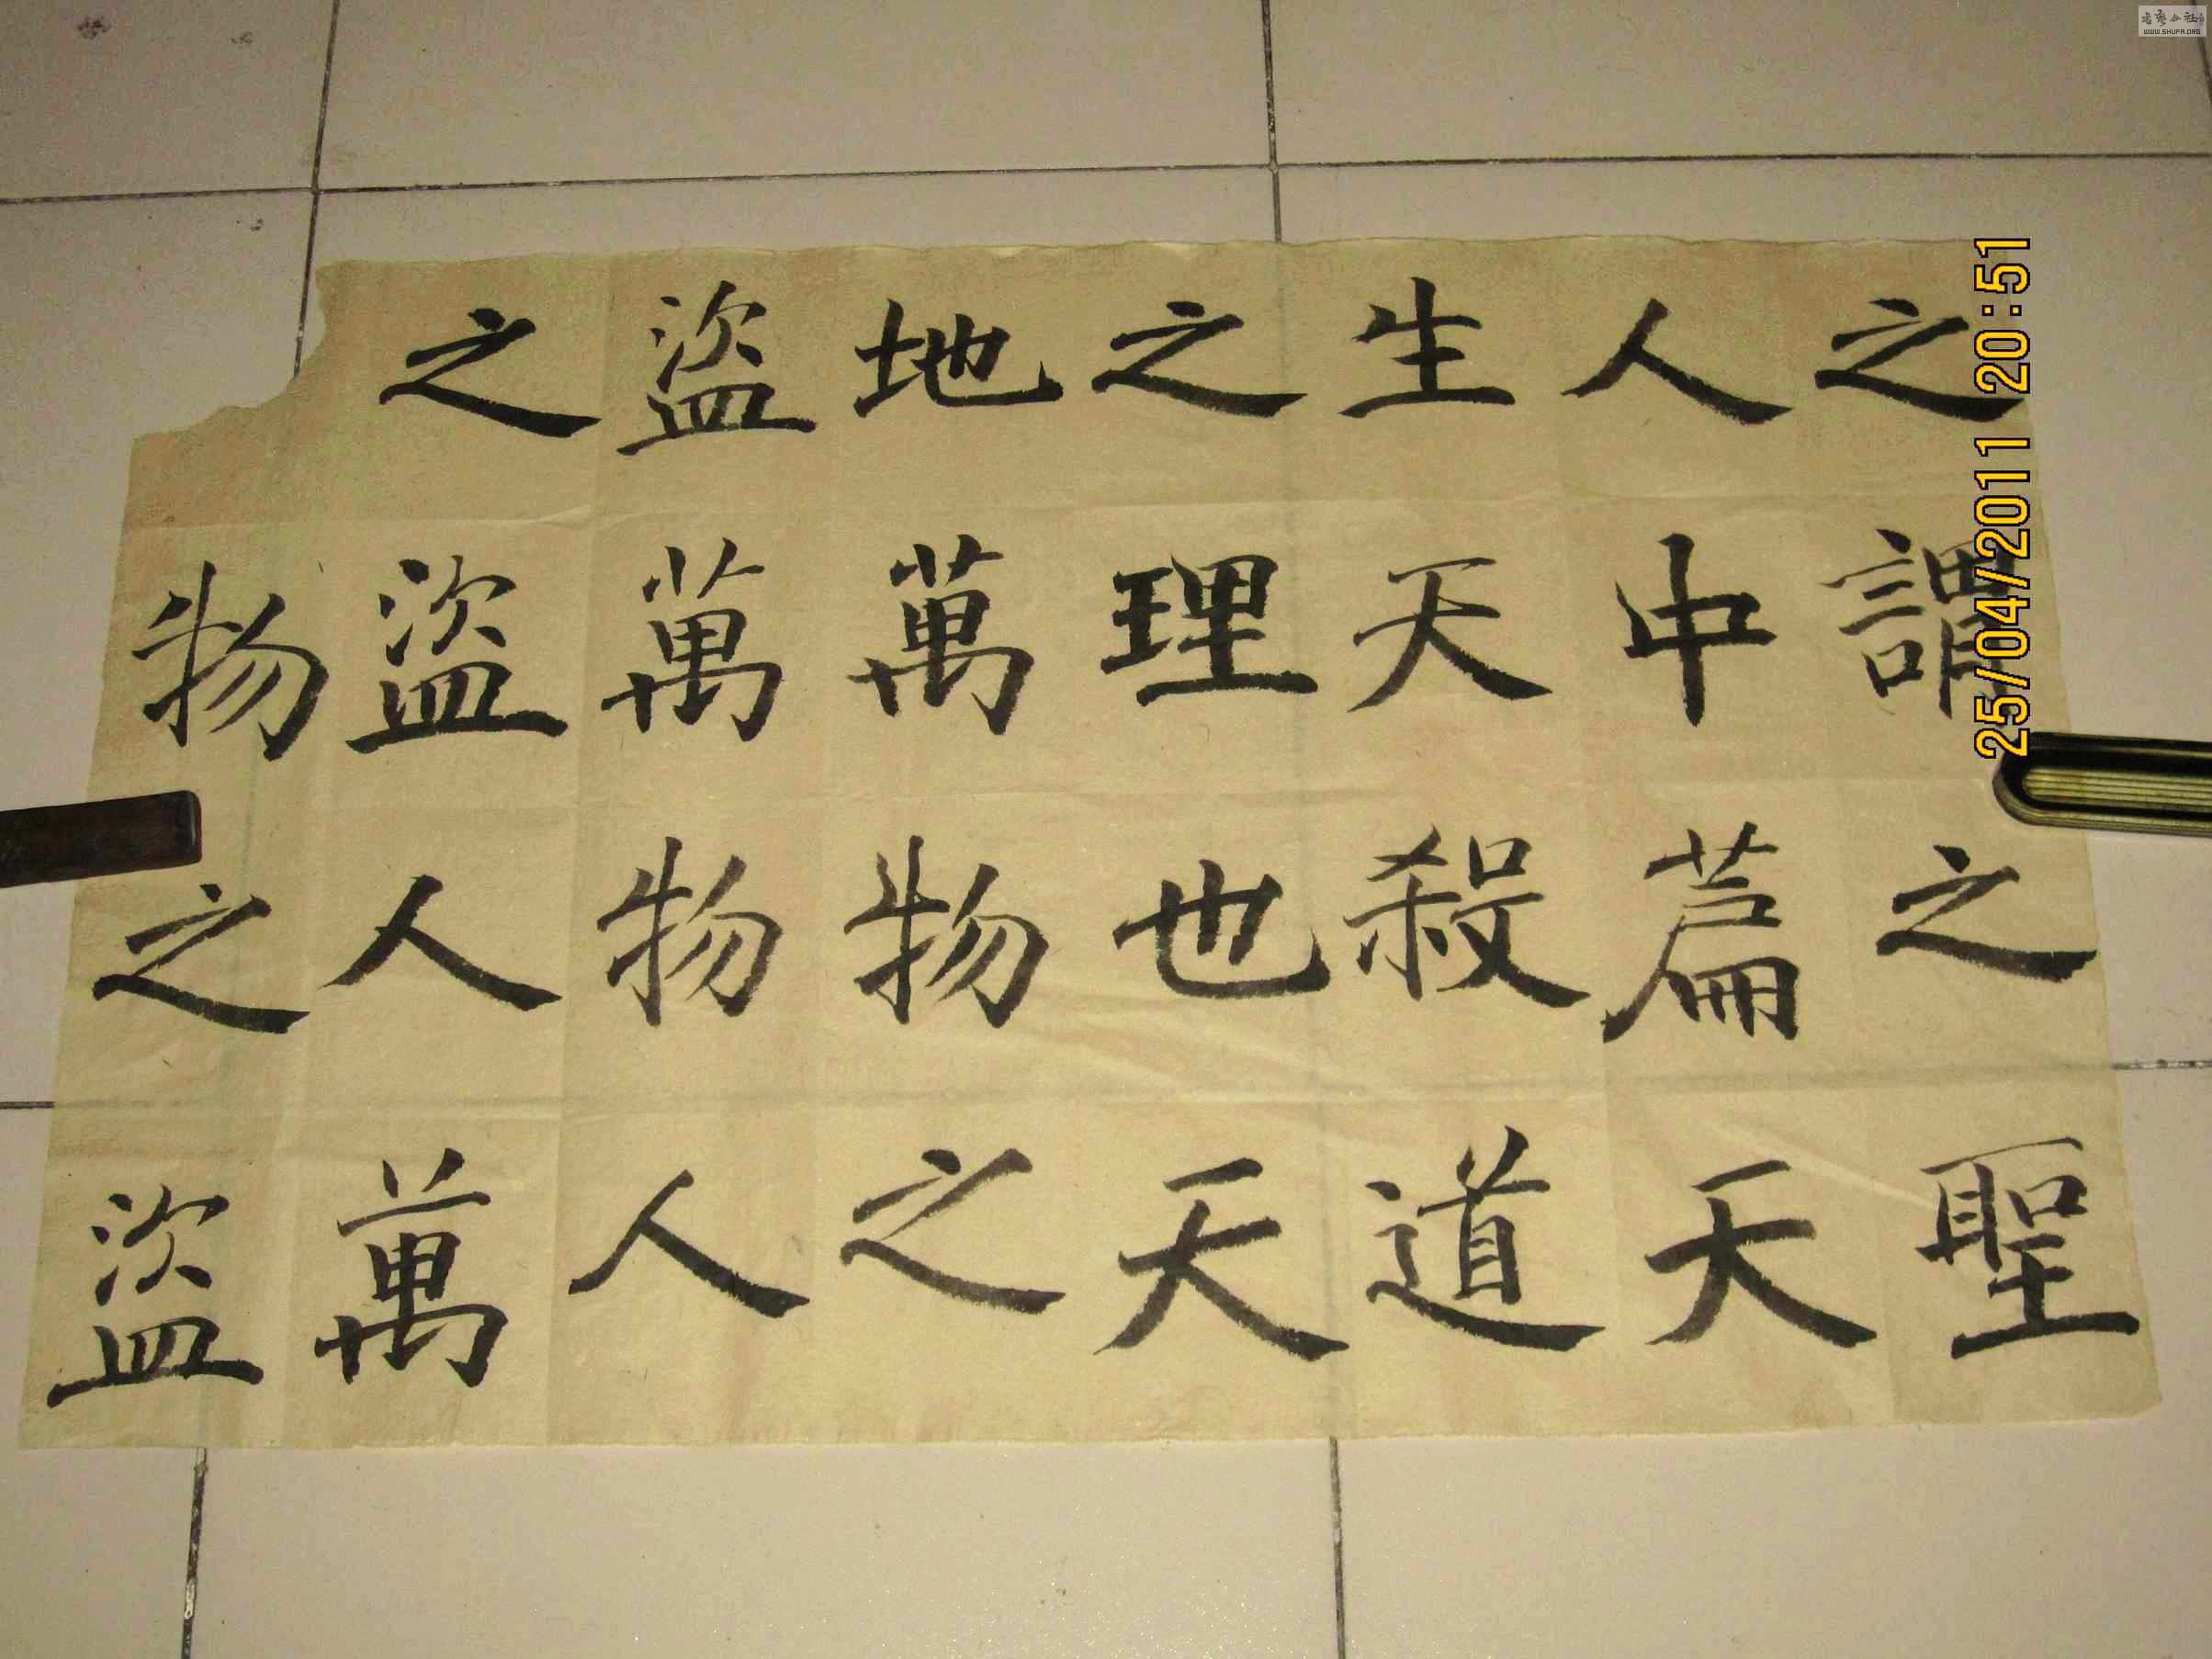 之謂之聖
人中篇天
生天殺道
之理也天
地萬物之
盜萬物人
之盜人萬
物之盜
25/04/2011 20:51
书艺公社
WWW.SHUFA.ORG